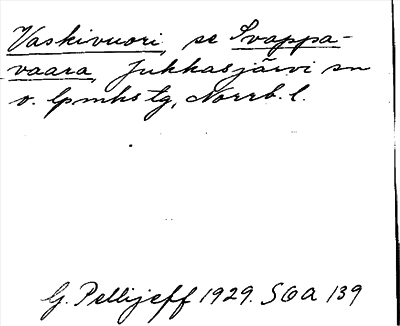 Vaskivuori, se Svappa-
vaara, Jukkasjärvi sn
o. lpmkstg, Norrb. l.
G. Pellijeff 1929. SOA 139